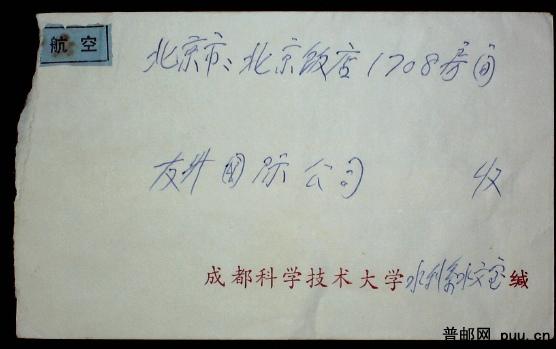 航空
北京市:北京饭店1708房间
友井国际公司 收
成都科学技术大学水利系水文室缄
普邮网 puu.cn